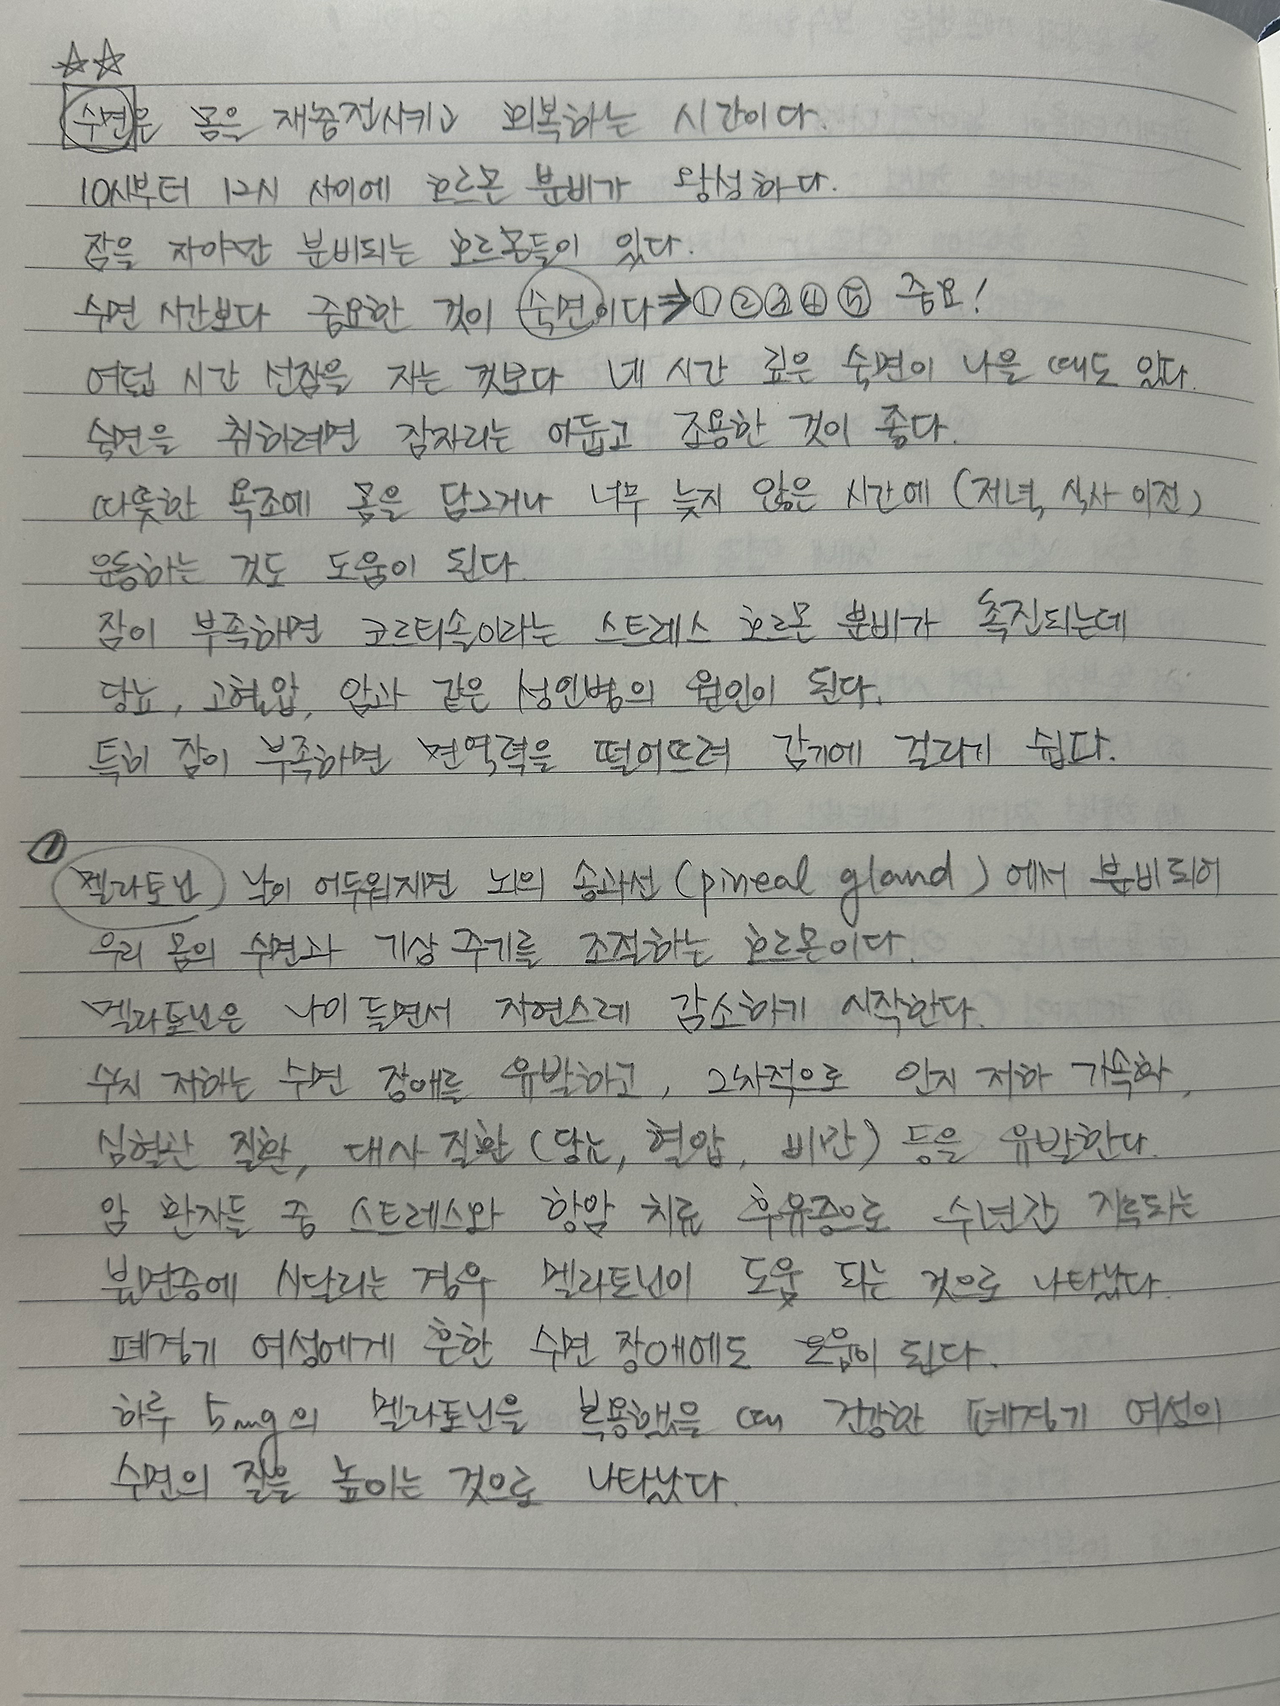 ☆☆
수면은 몸을 재충전시키고 회복하는 시간이다.
10시부터 12시 사이에 호르몬 분비가 왕성하다.
잠을 자야만 분비되는 호르몬들이 있다.
수면 시간보다 중요한 것이 숙면이다→①②③④⑤ 중요!
여덟 시간 선잠을 자는 것보다 네 시간 깊은 숙면이 나을 때도 있다.
숙면을 취하려면 잠자리는 어둡고 조용한 것이 좋다.
따뜻한 욕조에 몸을 담그거나 너무 늦지 않은 시간에 (저녁, 식사 이전)
운동하는 것도 도움이 된다.
잠이 부족하면 코르티솔이라는 스트레스 호르몬 분비가 촉진되는데
당뇨, 고혈압, 암과 같은 성인병의 원인이 된다.
특히 잠이 부족하면 면역력을 떨어뜨려 감기에 걸리기 쉽다.
①
멜라토닌) 날이 어두워지면 뇌의 송과선 (pineal gland) 에서 분비되어
우리 몸의 수면과 기상 주기를 조절하는 호르몬이다.
멜라토닌은 나이 들면서 자연스레 감소하기 시작한다.
수치 저하는 수면 장애를 유발하고, 2차적으로 인지 저하 가속화,
심혈관 질환, 대사 질환 (당뇨, 혈압, 비만) 등을 유발한다.
암 환자들 중 스트레스와 항암 치료 후유증으로 수년간 지속되는
불면증에 시달리는 경우 멜라토닌이 도움 되는 것으로 나타났다.
폐경기 여성에게 흔한 수면 장애에도 도움이 된다.
하루 5mg의 멜라토닌을 복용했을 때 건강한 폐경기 여성의
수면의 질을 높이는 것으로 나타났다.